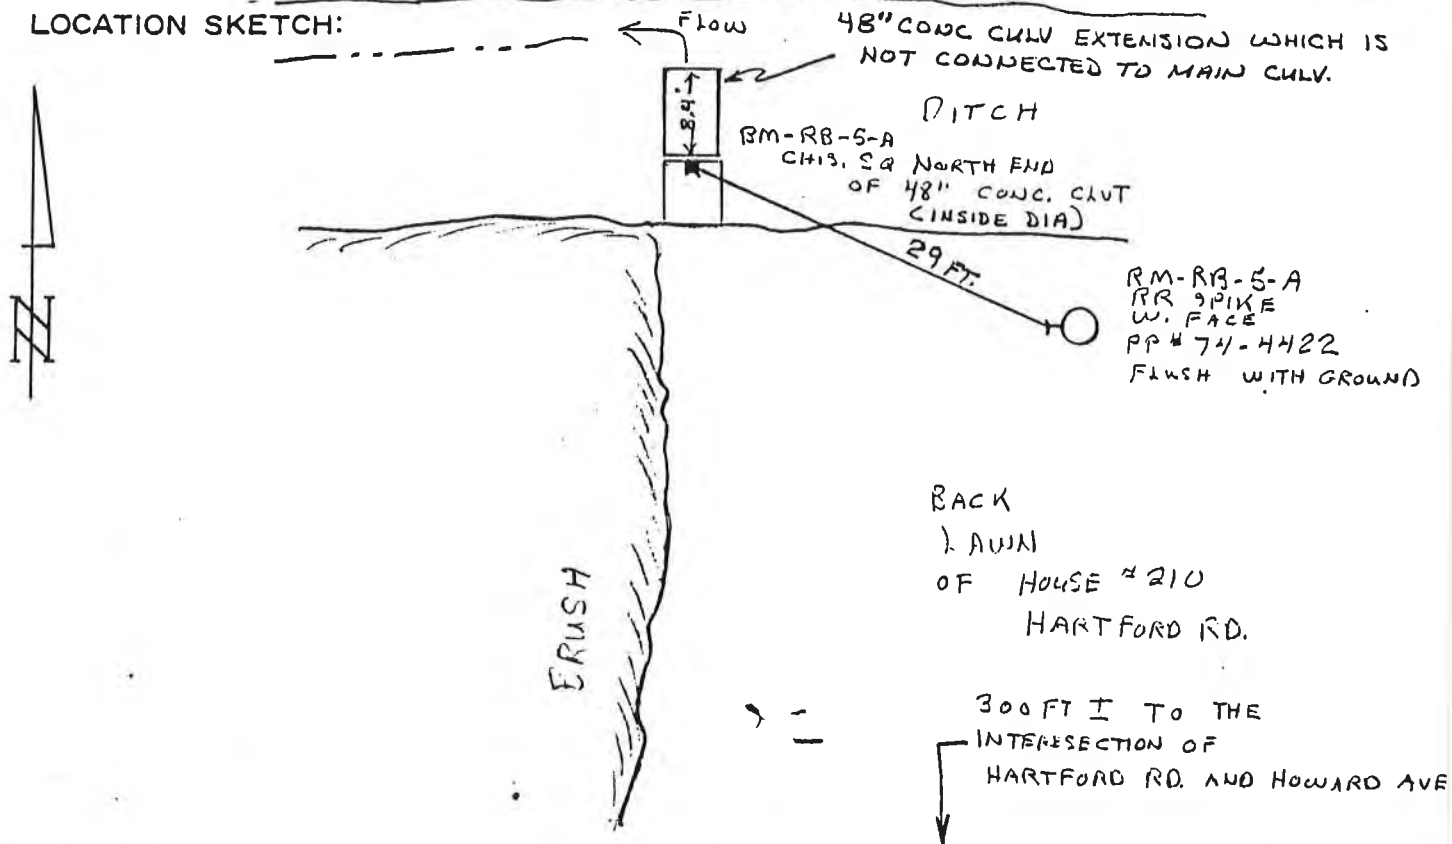 LOCATION SKETCH:
FLOW
48" CONC CULV EXTENSION WHICH IS
NOT CONNECTED TO MAIN CULV.
8.4'
DITCH
BM-RB-5-A
CHIS. SQ NORTH END
OF 48" CONC. CLVT
(INSIDE DIA)
29 FT.
RM-RB-5-A
RR SPIKE
W. FACE
PP # 74-4422
FLUSH WITH GROUND
N
BRUSH
BACK
LAWN
OF HOUSE # 210
HARTFORD RD.
300 FT ± TO THE
INTERSECTION OF
HARTFORD RD. AND HOWARD AVE